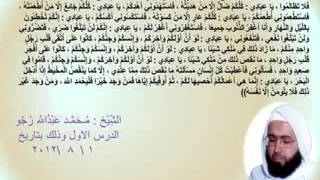 فَلَا تَظَالَمُوا ، يَا عِبَادِي : كُلُّكُمْ ضَالٌّ إِلَّا مَنْ هَدَيْتُهُ ، فَاسْتَهْدُونِي أَهْدِكُمْ ، يَا عِبَادِي : كُلُّكُمْ جَائِعٌ إِلَّا مَنْ أَطْعَمْتُهُ ،
فَاسْتَطْعِمُونِي أُطْعِمْكُمْ ، يَا عِبَادِي : كُلُّكُمْ عَارٍ إِلَّا مَنْ كَسَوْتُهُ ، فَاسْتَكْسُونِي أَكْسُكُمْ ، يَا عِبَادِي : إِنَّكُمْ تُخْطِئُونَ
بِاللَّيْلِ وَالنَّهَارِ وَأَنَا أَغْفِرُ الذُّنُوبَ جَمِيعًا ، فَاسْتَغْفِرُونِي أَغْفِرْ لَكُمْ ، يَا عِبَادِي : إِنَّكُمْ لَنْ تَبْلُغُوا ضَرِّي ، فَتَضُرُّونِي
وَلَنْ تَبْلُغُوا نَفْعِي ، فَتَنْفَعُونِي ، يَا عِبَادِي : لَوْ أَنَّ أَوَّلَكُمْ وَآخِرَكُمْ ، وَإِنْسَكُمْ وَجِنَّكُمْ ، كَانُوا عَلَى أَتْقَى قَلْبِ رَجُلٍ
وَاحِدٍ مِنْكُمْ ، مَا زَادَ ذَلِكَ فِي مُلْكِي شَيْئًا ، يَا عِبَادِي : لَوْ أَنَّ أَوَّلَكُمْ وَآخِرَكُمْ ، وَإِنْسَكُمْ وَجِنَّكُمْ ، كَانُوا عَلَى أَفْجَرِ قَلْبِ
رَجُلٍ وَاحِدٍ ، مَا نَقَصَ ذَلِكَ مِنْ مُلْكِي شَيْئًا ، يَا عِبَادِي : لَوْ أَنَّ أَوَّلَكُمْ وَآخِرَكُمْ ، وَإِنْسَكُمْ وَجِنَّكُمْ ، قَامُوا فِي
صَعِيدٍ وَاحِدٍ ، فَسَأَلُونِي فَأَعْطَيْتُ كُلَّ إِنْسَانٍ مَسْأَلَتَهُ مَا نَقَصَ ذَلِكَ مِمَّا عِنْدِي ، إِلَّا كَمَا يَنْقُصُ الْمِخْيَطُ إِذَا أُدْخِلَ
الْبَحْرَ ، يَا عِبَادِي : إِنَّمَا هِيَ أَعْمَالُكُمْ أُحْصِيهَا لَكُمْ ، ثُمَّ أُوَفِّيكُمْ إِيَّاهَا فَمَنْ وَجَدَ خَيْرًا ، فَلْيَحْمَدِ اللَّهَ ، وَمَنْ وَجَدَ غَيْرَ
ذَلِكَ ، فَلَا يَلُومَنَّ إِلَّا نَفْسَهُ ))
الشَّيْخ : مُحَمَّد عَبْدُالله رَجُو
الدرس الاول وذلك بتاريخ
١ \ ٨ \ ٢٠١٢